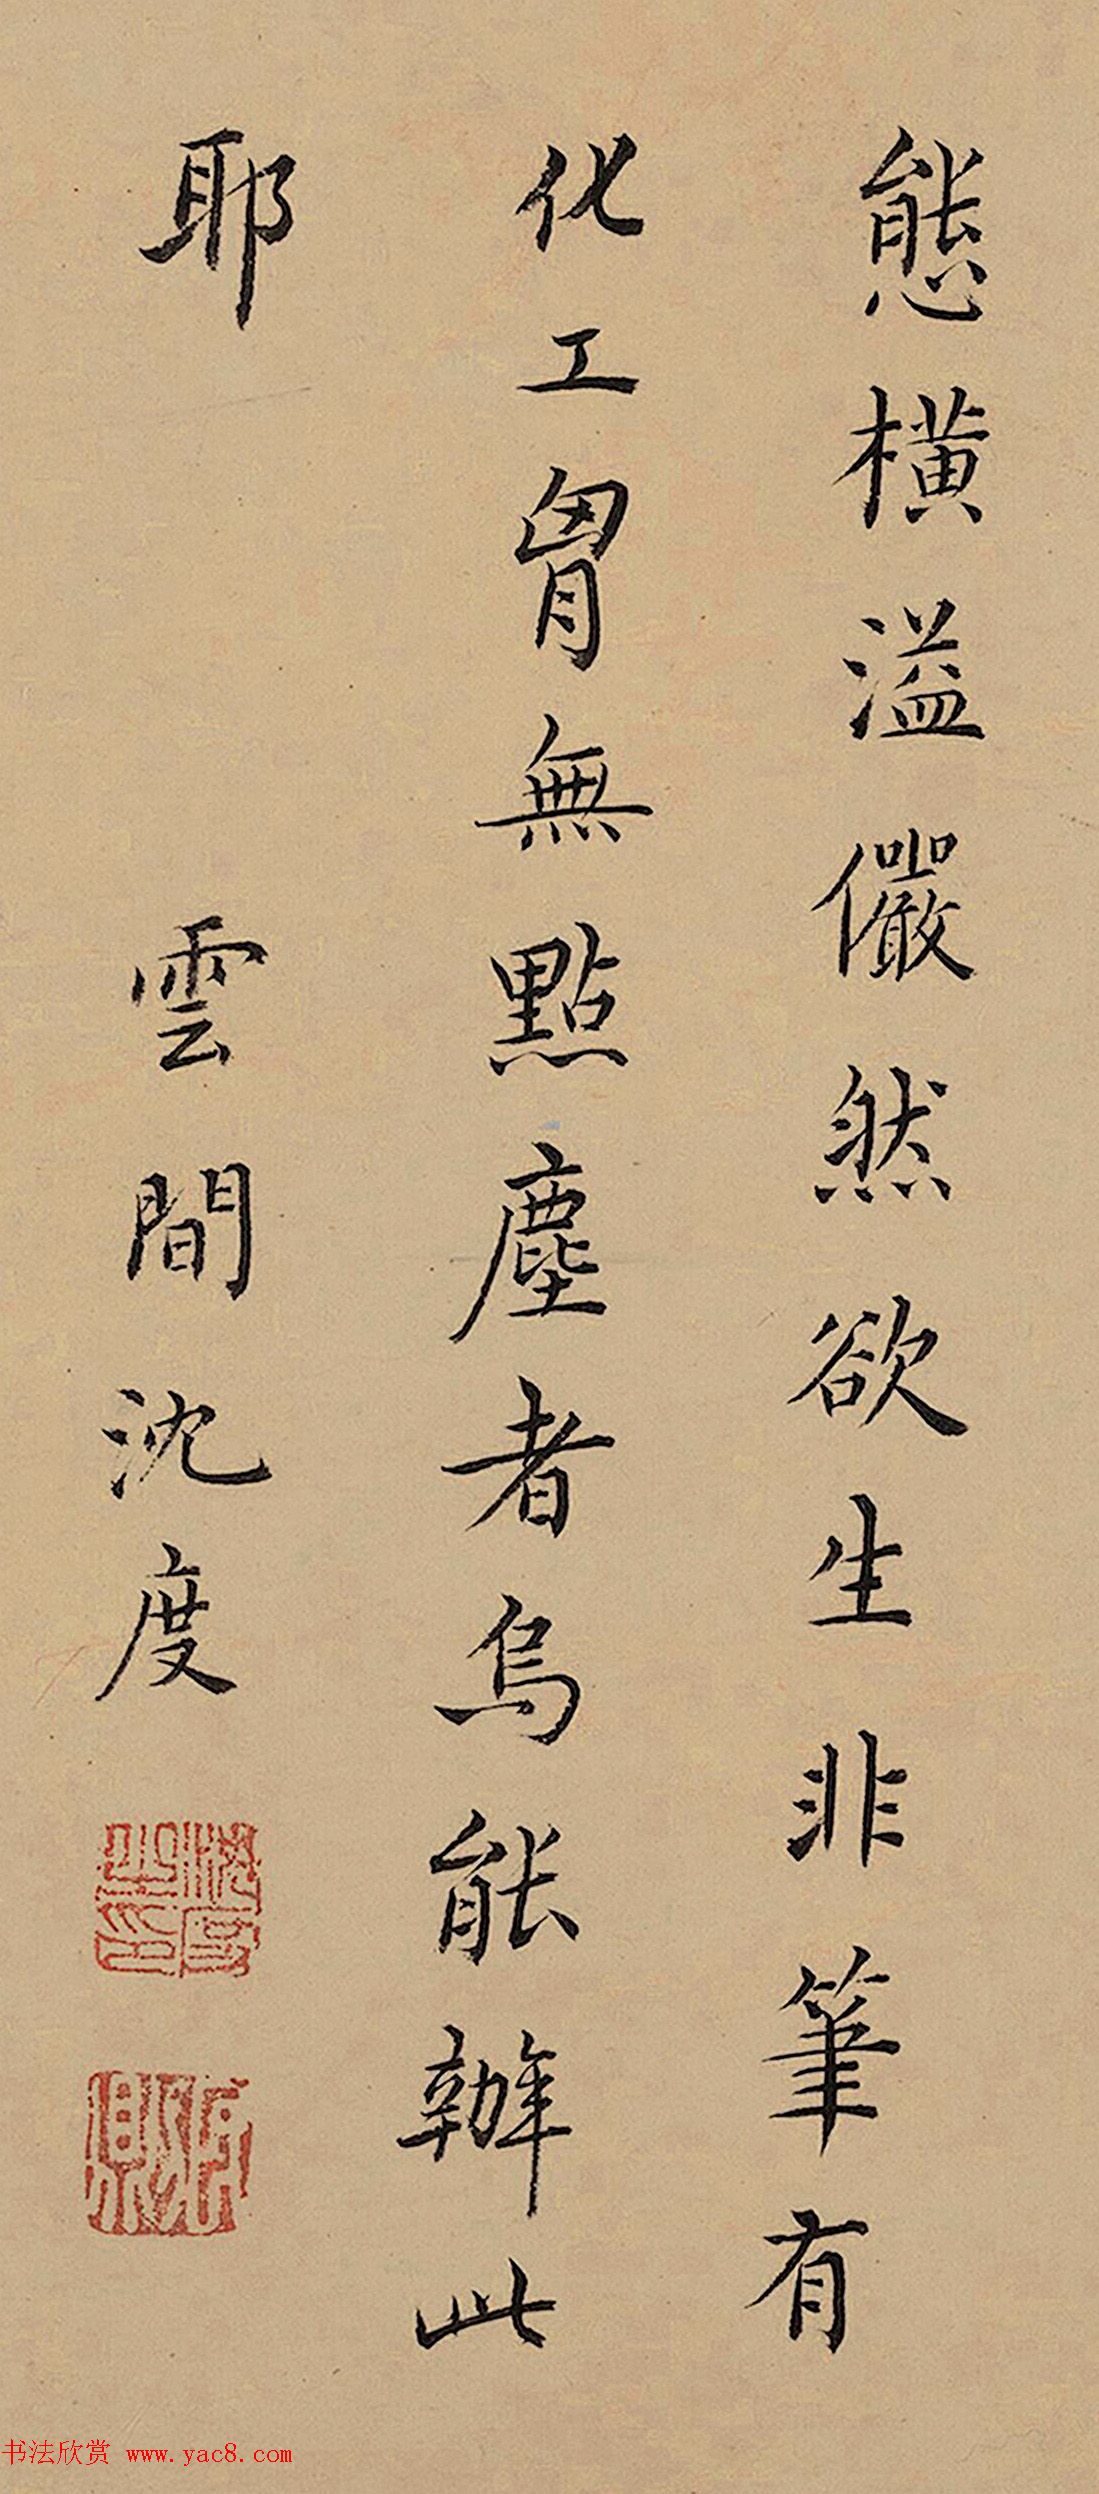 態橫溢儼然欲生非筆有
化工胷無點塵者烏能辦此
耶
雲間沈度
沈度之印
书法欣赏 www.yac8.com